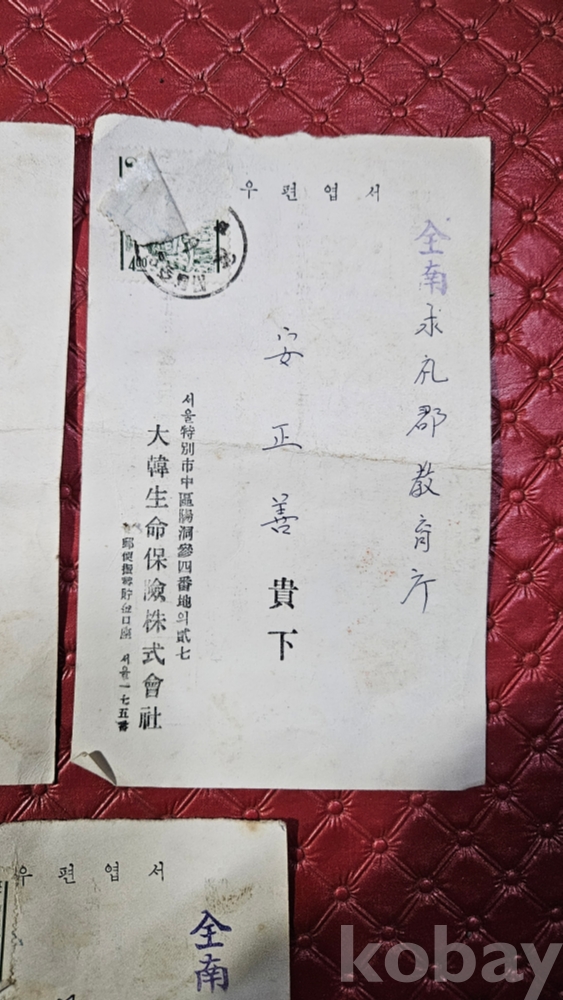 우편엽서
全南
求礼郡教育庁
安正善 貴下
서울特別市中區陽洞參四番地의貳七
大韓生命保險株式會社
郵便振替貯金口座 서울一七五番
400
우편엽서
全南
kobay